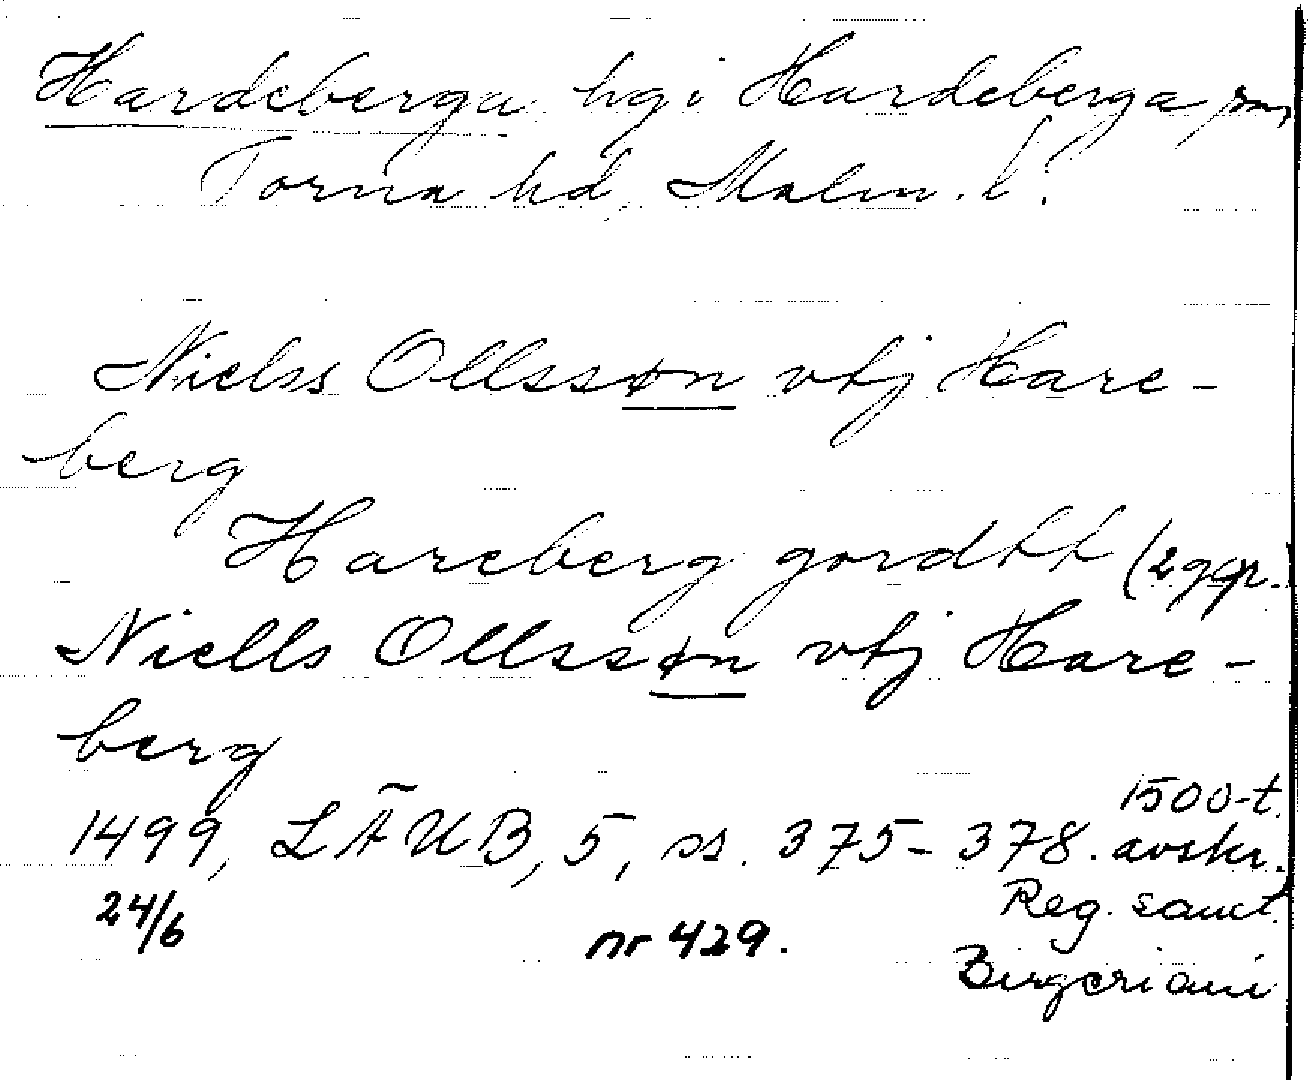 Hardeberga hg i Hardeberga sn,
Torna hd, Malm. l.
Nielss Ollssøn vtj Hare-
berg
Hareberg gordtt (2 ggr.
Niells Ollssøn vtj Hare-
berg
1499, LÄUB, 5, ss. 375-378. 1500-t. avskr.
24/6 nr 429. Reg. sanct.
Birgeriani